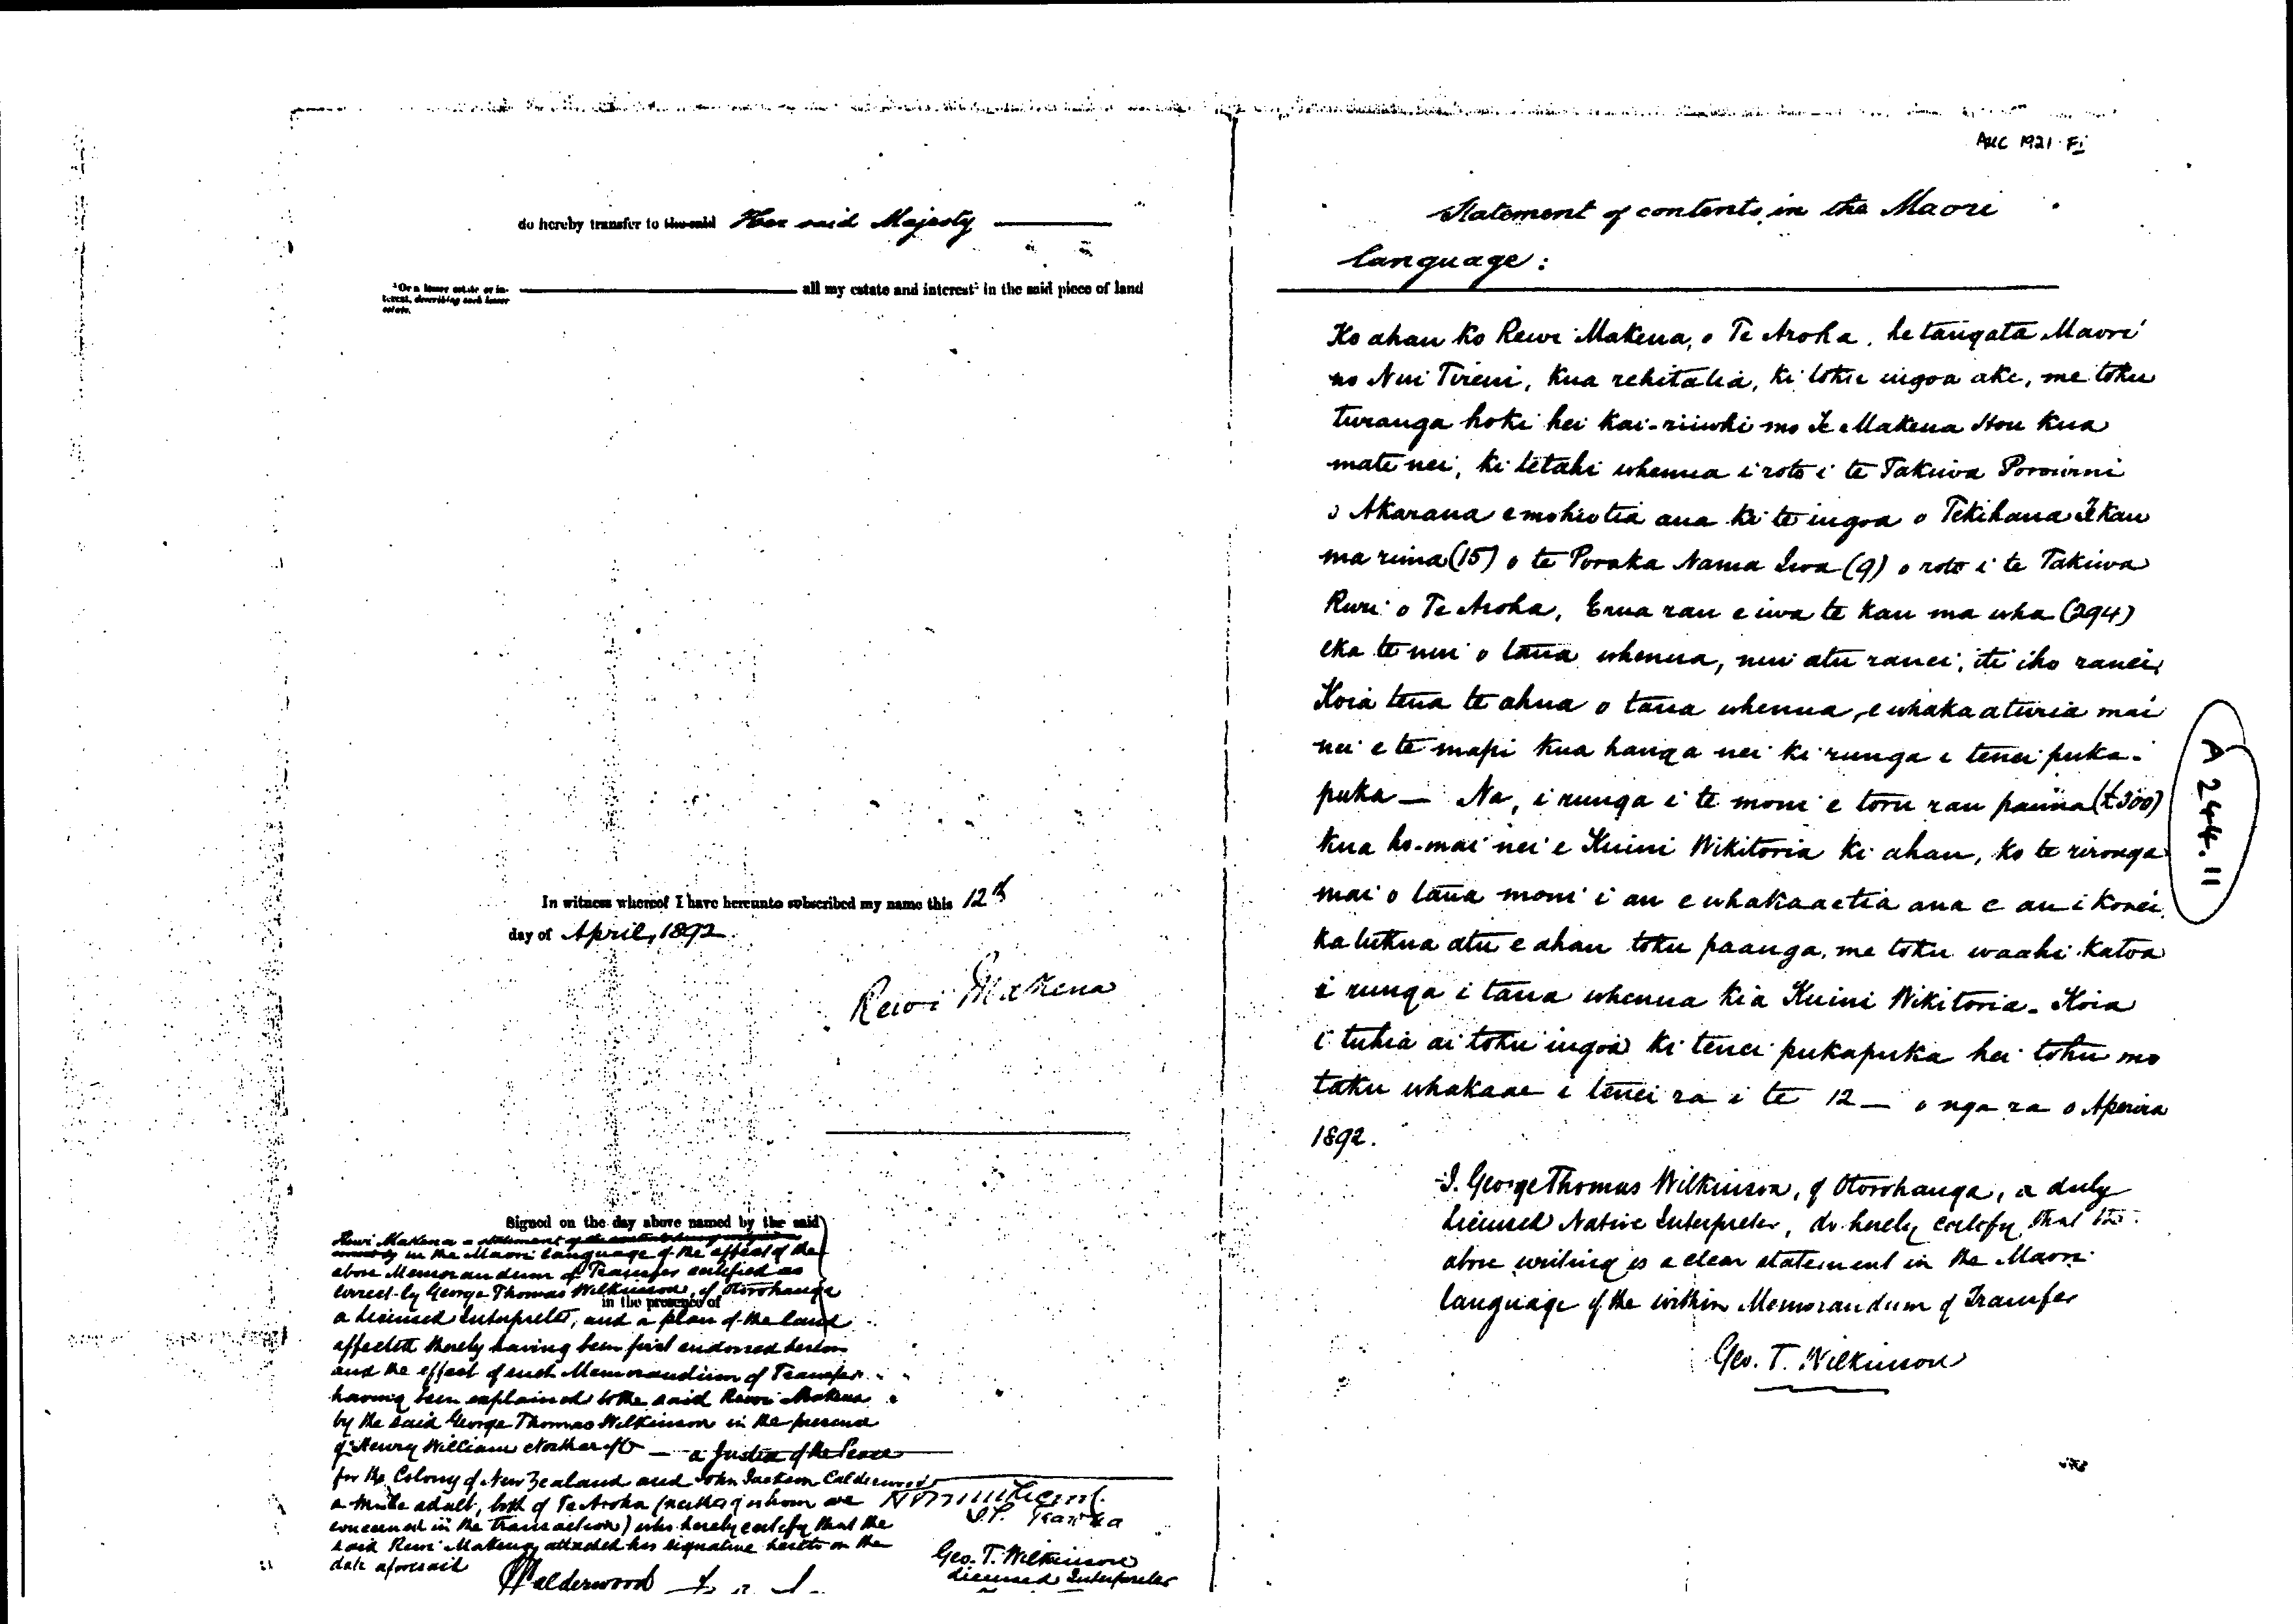 do hereby transfer to the said Her said Majesty
¹Or a lesser estate or in-
terest, describing such lesser
estate.
all my estate and interest¹ in the said piece of land
In witness whereof I have hereunto subscribed my name this 12th
day of April, 1892.
Rewi Makena
Signed on the day above named by the said
Rewi Makena a statement of the
in the Maori language of the effect of the
above Memorandum of Transfer certified as
correct by George Thomas Wilkinson, of Otorohanga
in the presence of
a licensed Interpreter, and a plan of the land
affected thereby having been first endorsed hereon
and the effect of such Memorandum of Transfer
having been explained to the said Rewi Makena
by the said George Thomas Wilkinson in the presence
of Henry William — a Justice of the Peace
for the Colony of New Zealand and John Jackson Calderwood
a male adult, both of Te Aroha (neither of whom are
concerned in the transaction) who hereby certify that the
said Rewi Makena attached his signature hereto on the
date aforesaid
J.P.
Geo. T. Wilkinson
Licensed Interpreter
Calderwood
AUC 1921 Fi
Statement of contents in the Maori
language:
Ko ahau ko Rewi Makena, o Te Aroha, he tangata Maori
no Nui Tireni, kua rehitatia, ki toku ingoa ake, me toku
turanga hoki hei kai-riiwhi mo Te Makena Hou kua
mate nei, ki tetahi whenua i roto i te Takiwa Porowini
o Akarana e mohiotia ana ki te ingoa o Tekihana Tekau
ma rima (15) o te Poraka Nama Iwa (9) o roto i te Takiwa
Ruri o Te Aroha, Erua rau e iwa te kau ma wha (294)
eka te nui o taua whenua, nui atu ranei, iti iho ranei,
Koia tena te ahua o taua whenua, e whakaaturia mai
nei e te mapi kua hanga nei ki runga i tenei puka-
puka — Na, i runga i te moni e toru rau pauna (£300)
kua ho-mai nei e Kuini Wikitoria ki ahau, ko te rironga
mai o taua moni i au e whakaaetia ana e au i konei,
ka tukua atu e ahau toku paanga, me toku waahi katoa
i runga i taua whenua kia Kuini Wikitoria. Koia
i tuhia ai toku ingoa ki tenei pukapuka hei tohu mo
taku whakaae i tenei ra i te 12 — o nga ra o Aperira
1892.
I. George Thomas Wilkinson, of Otorohanga, a duly
licensed Native Interpreter, do hereby certify that the
above writing is a clear statement in the Maori
language of the within Memorandum of Transfer
Geo. T. Wilkinson
A 244.11